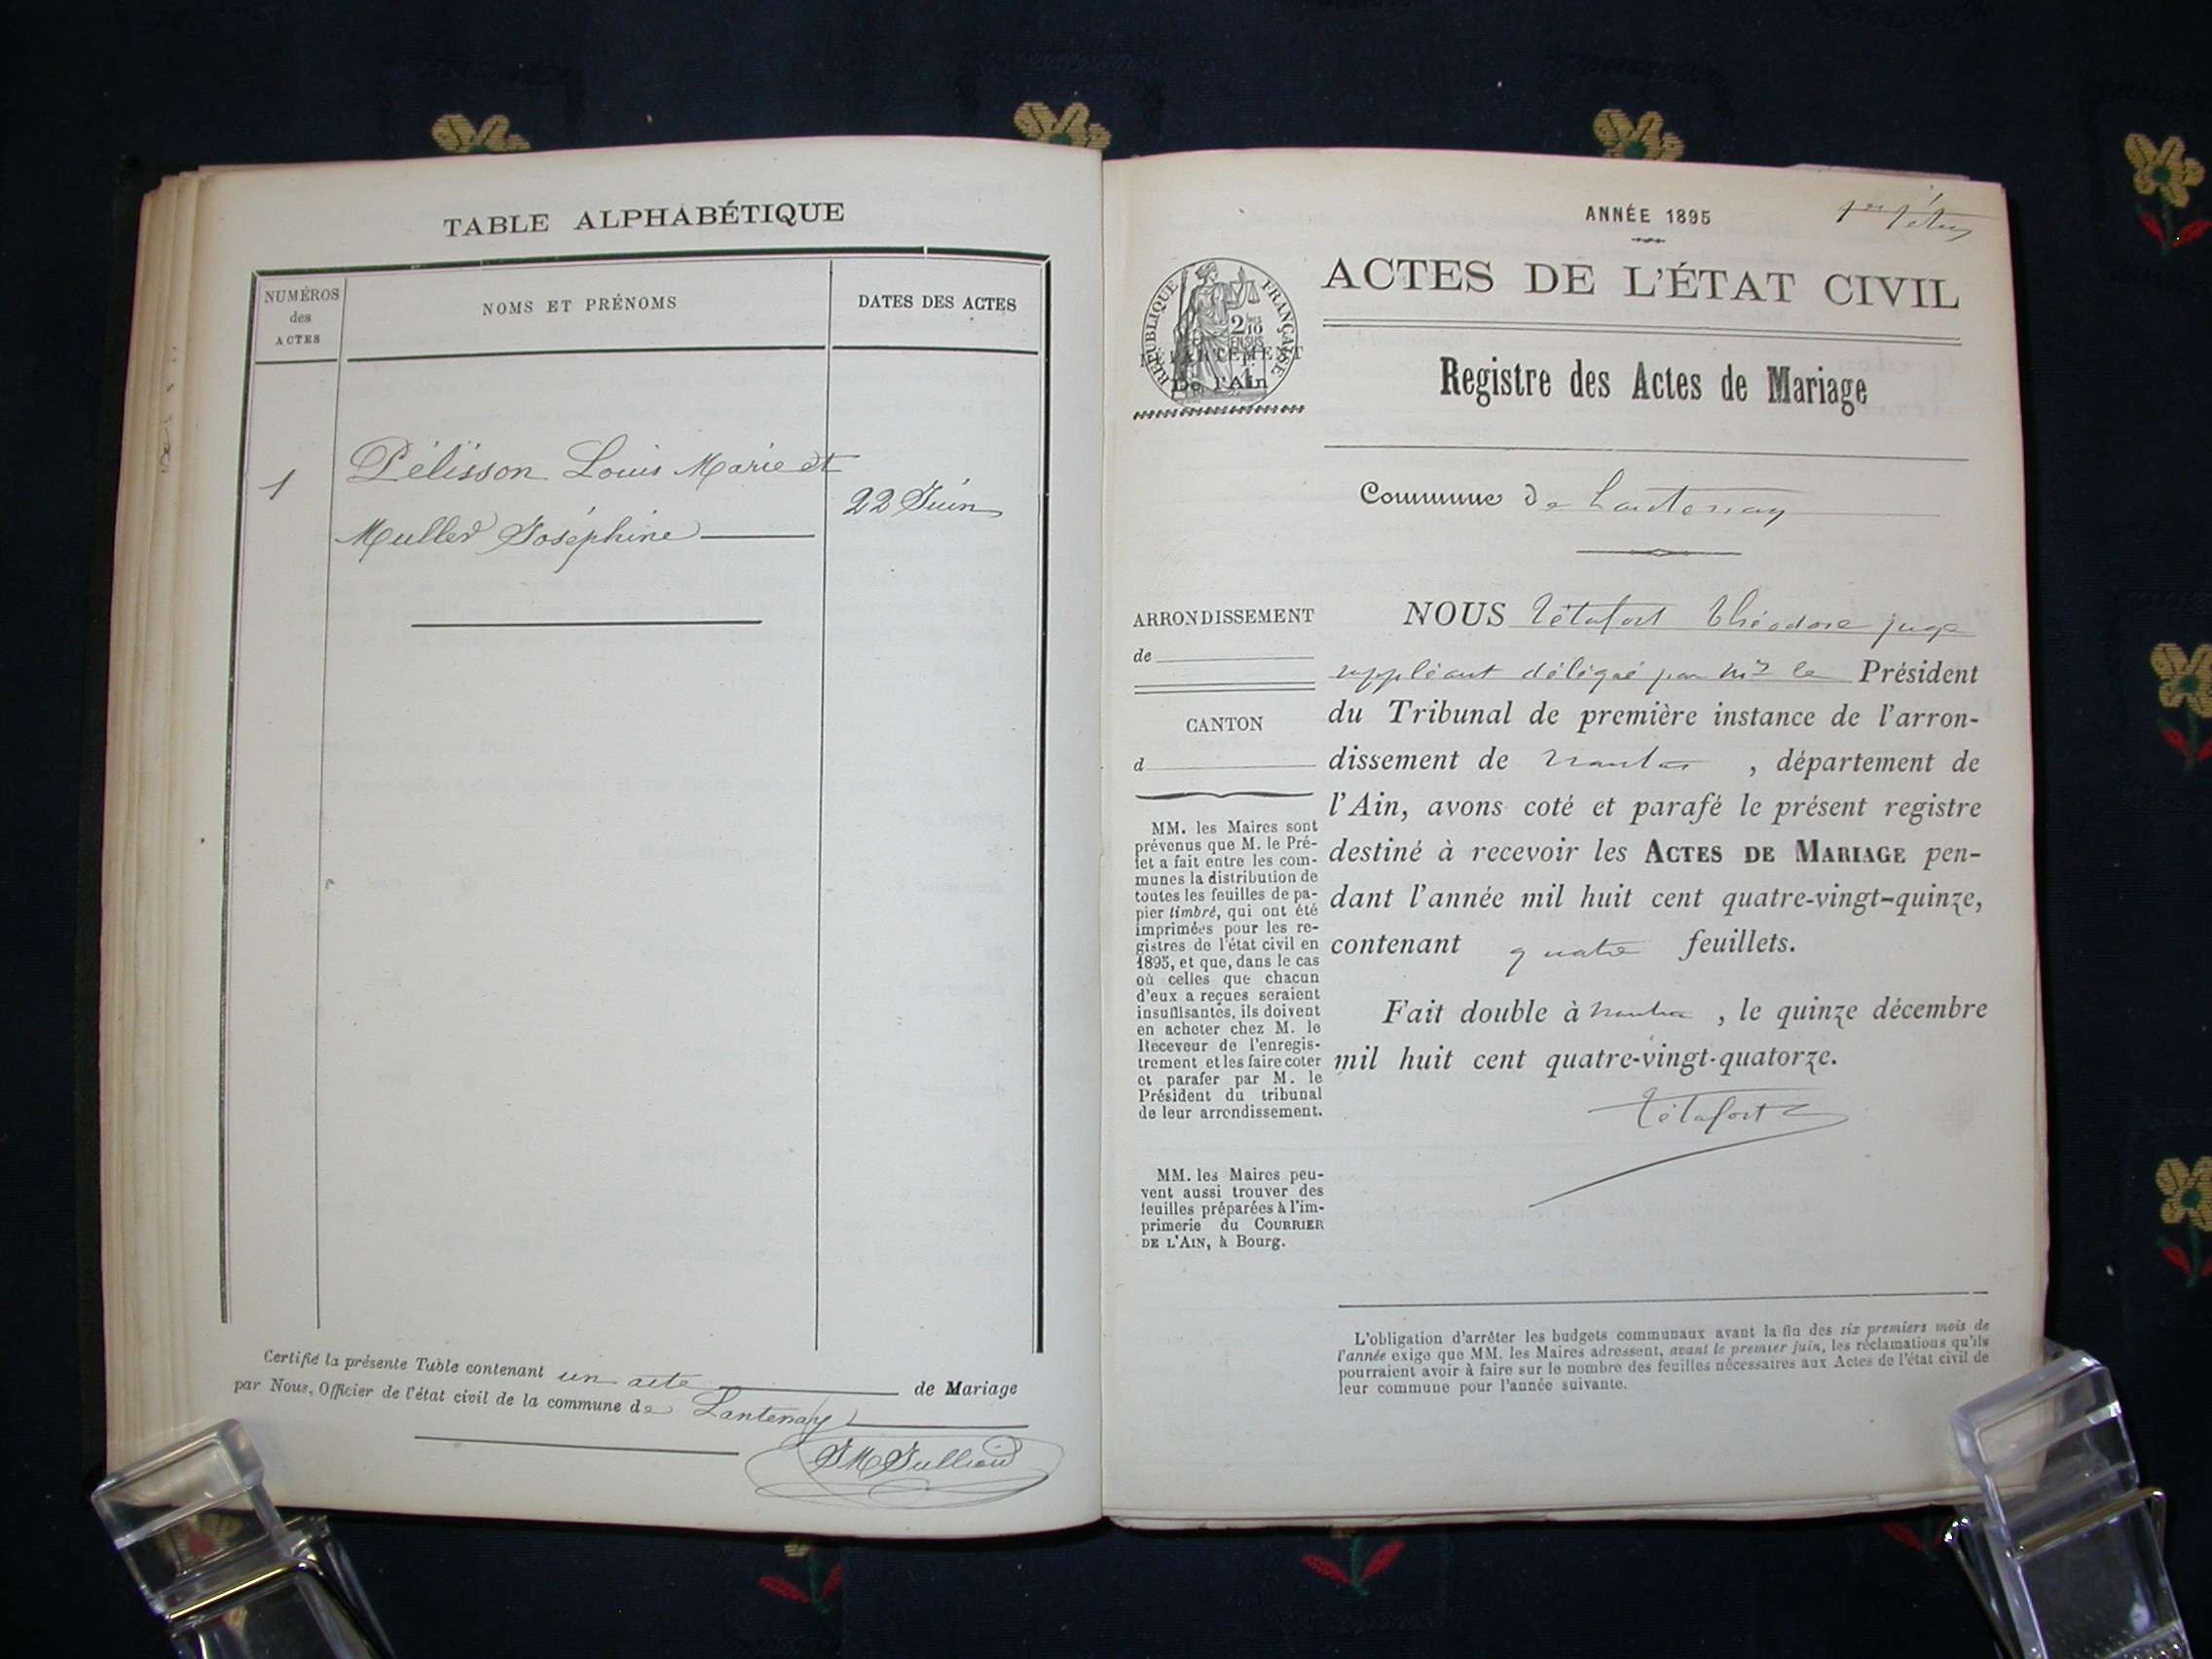 TABLE ALPHABÉTIQUE
NUMÉROS
des
ACTES
NOMS ET PRÉNOMS
DATES DES ACTES
1
Pélisson Louis Marie et
Muller Joséphine
22 Juin
Certifié la présente Table contenant un acte de Mariage
par Nous, Officier de l'état civil de la commune de Lantenay
JMJulliard
ANNÉE 1895
ACTES DE L'ÉTAT CIVIL
RÉPUBLIQUE FRANÇAISE
DÉPARTEMENT
De l'Ain
Registre des Actes de Mariage
Commune de Lantenay
ARRONDISSEMENT
de
CANTON
d
MM. les Maires sont
prévenus que M. le Pré-
fet a fait entre les com-
munes la distribution de
toutes les feuilles de pa-
pier timbré, qui ont été
imprimées pour les re-
gistres de l'état civil en
1895, et que, dans le cas
où celles que chacun
d'eux a reçues seraient
insuffisantes, ils doivent
en acheter chez M. le
Receveur de l'enregis-
trement et les faire coter
et parafer par M. le
Président du tribunal
de leur arrondissement.
MM. les Maires peu-
vent aussi trouver des
feuilles préparées à l'im-
primerie du COURRIER
DE L'AIN, à Bourg.
NOUS Tétafort Théodore juge
suppléant délégué par Mr le Président
du Tribunal de première instance de l'arron-
dissement de Nantua, département de
l'Ain, avons coté et parafé le présent registre
destiné à recevoir les ACTES DE MARIAGE pen-
dant l'année mil huit cent quatre-vingt-quinze,
contenant quatre feuillets.
Fait double à Nantua, le quinze décembre
mil huit cent quatre-vingt-quatorze.
Tétafort
L'obligation d'arrêter les budgets communaux avant la fin des six premiers mois de
l'année exige que MM. les Maires adressent, avant le premier juin, les réclamations qu'ils
pourraient avoir à faire sur le nombre des feuilles nécessaires aux Actes de l'état civil de
leur commune pour l'année suivante.